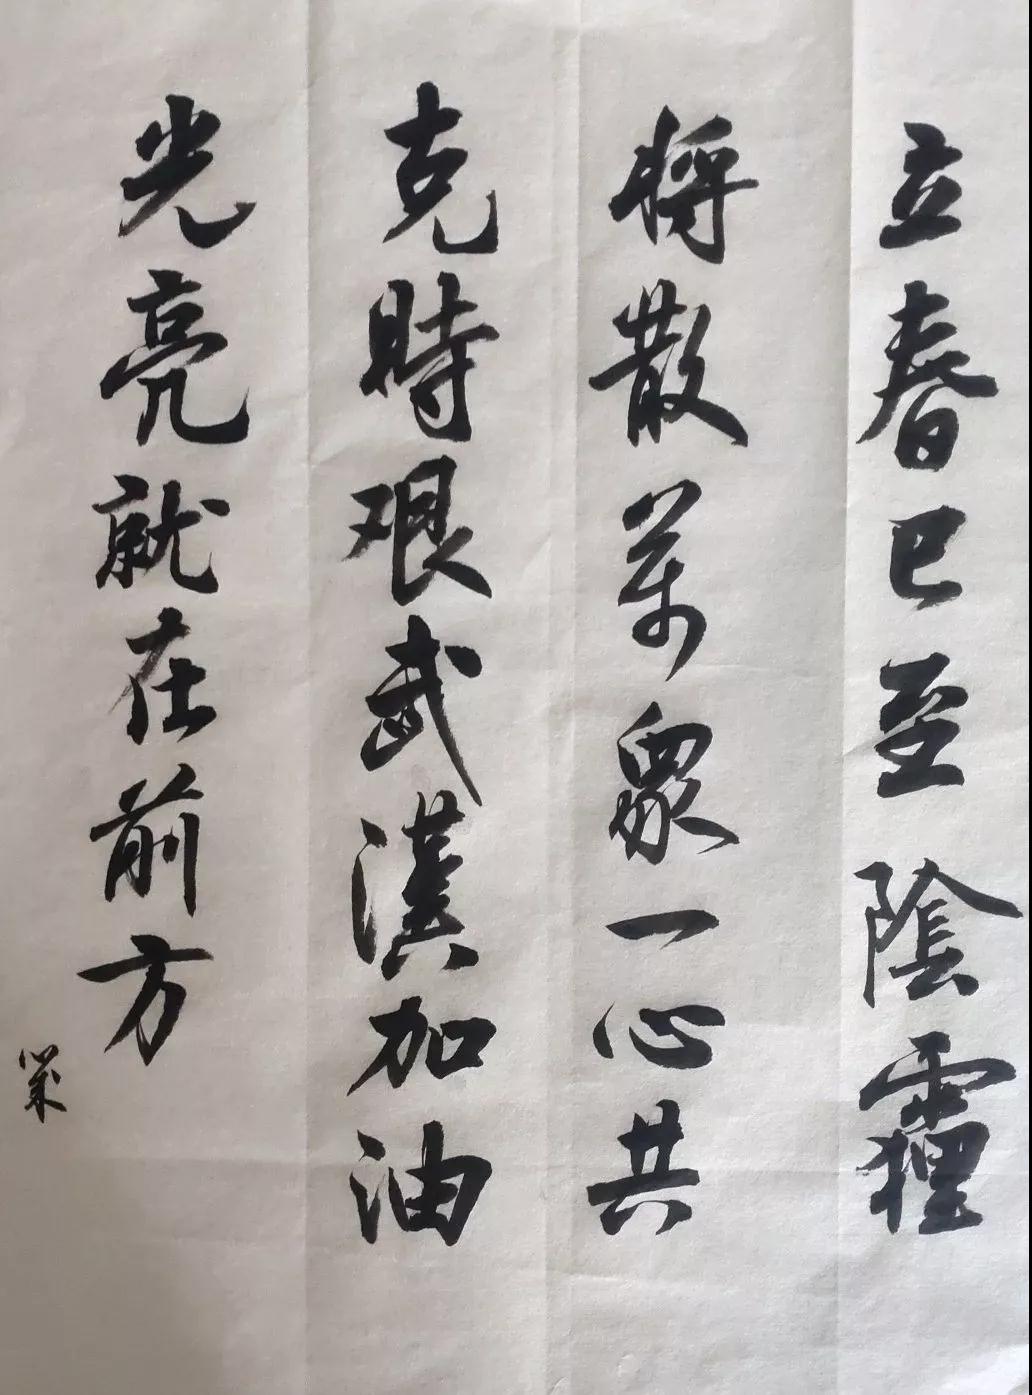 立春已至陰霾
將散萬眾一心共
克時艰武漢加油
光亮就在前方